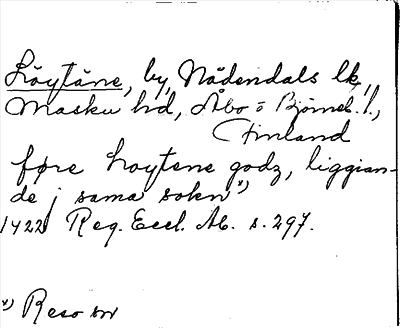 Löytäne, by, Nådendals lk,
Masku hd, Åbo o Björneb. l.,
Finland
føre loytene godz, liggian-
de j sama sokn x)
1422 Reg. Eccl. Ab. s. 297.
x) Reso sn